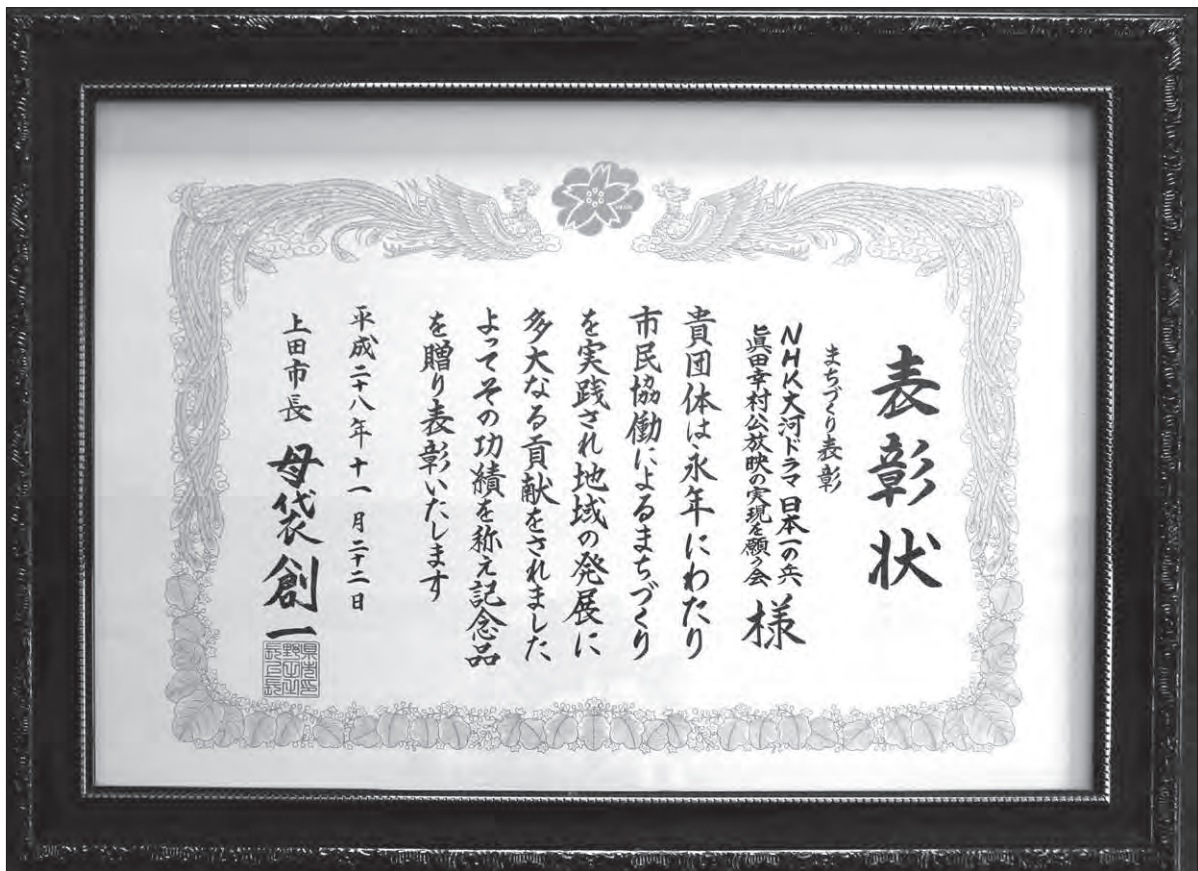 表彰状
まちづくり表彰
NHK大河ドラマ 日本一の兵
眞田幸村公放映の実現を願う会 様
貴団体は永年にわたり
市民協働によるまちづくり
を実践され地域の発展に
多大なる貢献をされました
よってその功績を称え記念品
を贈り表彰いたします
平成二十八年十一月二十二日
上田市長 母袋創一